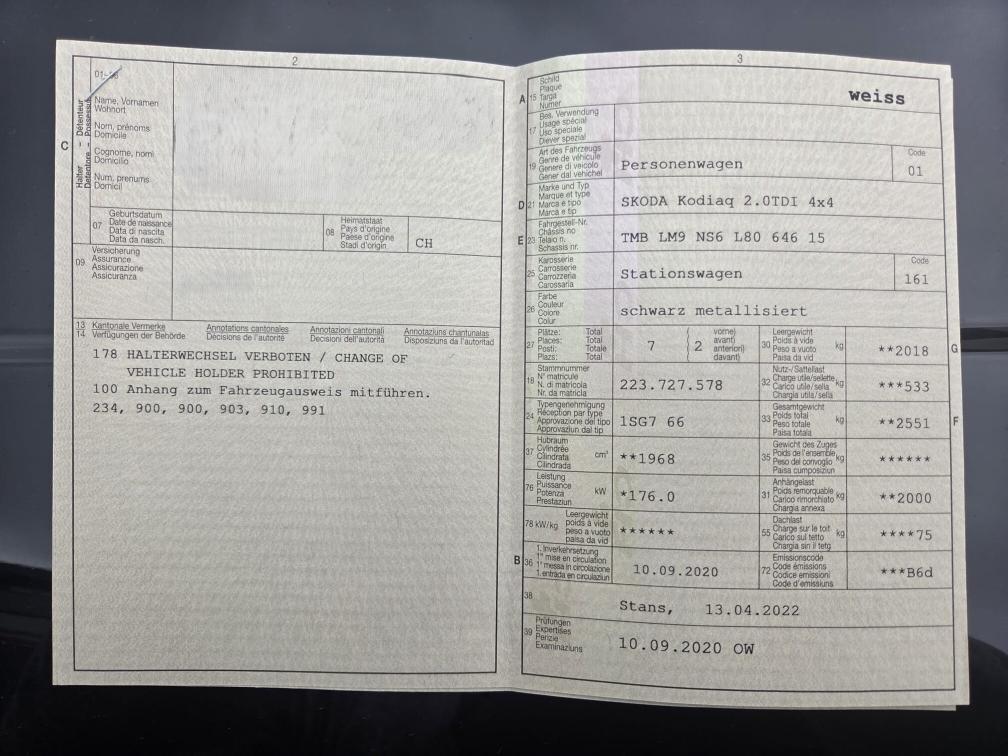 2
01-06
C
Halter - Détenteur
Detentore - Possessur
Name, Vornamen
Wohnort
Nom, prénoms
Domicile
Cognome, nomi
Domicilio
Num, prenums
Domicil
07
Geburtsdatum
Date de naissance
Data di nascita
Data da nasch.
08
Heimatstaat
Pays d'origine
Paese d'origine
Stadi d'origin
CH
09
Versicherung
Assurance
Assicurazione
Assicuranza
13 Kantonale Vermerke Annotations cantonales Annotazioni cantonali Annotaziuns chantunalas
14 Verfügungen der Behörde Décisions de l'autorité Decisioni dell'autorità Disposiziuns da l'autoritad
178 HALTERWECHSEL VERBOTEN / CHANGE OF
VEHICLE HOLDER PROHIBITED
100 Anhang zum Fahrzeugausweis mitführen.
234, 900, 900, 903, 910, 991
3
A 15
Schild
Plaque
Targa
Numer
weiss
17
Bes. Verwendung
Usage spécial
Uso speciale
Diever spezial
19
Art des Fahrzeugs
Genre de véhicule
Genere di veicolo
Gener dal vehichel
Personenwagen
Code
01
D 21
Marke und Typ
Marque et type
Marca e tipo
Marca e tip
SKODA Kodiaq 2.0TDI 4x4
E 23
Fahrgestell-Nr.
Châssis no
Telaio n.
Schassis nr.
TMB LM9 NS6 L80 646 15
25
Karosserie
Carrosserie
Carrozzeria
Carossaria
Stationswagen
Code
161
26
Farbe
Couleur
Colore
Colur
schwarz metallisiert
27
Plätze: Total
Places: Total
Posti: Totale
Plazs: Total
7
2
vorne)
avant)
anteriori)
davant)
30
Leergewicht
Poids à vide
Peso a vuoto
Paisa da vid
kg
**2018
G
18
Stammnummer
N° matricule
N. di matricola
Nr. da matricla
223.727.578
32
Nutz-/Sattellast
Charge utile/sellette
Carico utile/sella
Chargia utila/sella
kg
***533
24
Typengenehmigung
Réception par type
Approvazione del tipo
Approvaziun dal tip
1SG7 66
33
Gesamtgewicht
Poids total
Peso totale
Paisa totala
kg
**2551
F
37
Hubraum
Cylindrée
Cilindrata
Cilindrada
cm³
**1968
35
Gewicht des Zuges
Poids de l'ensemble
Peso del convoglio
Paisa cumposiziun
kg
******
76
Leistung
Puissance
Potenza
Prestaziun
kW
*176.0
31
Anhängelast
Poids remorquable
Carico rimorchiato
Chargia annexa
kg
**2000
78 kW/kg
Leergewicht
poids à vide
peso a vuoto
paisa da vid
******
55
Dachlast
Charge sur le toit
Carico sul tetto
Chargia sin il tetg
kg
****75
B 36
1. Inverkehrsetzung
1re mise en circulation
1a messa in circolazione
1. entrada en circulaziun
10.09.2020
72
Emissionscode
Code émissions
Codice emissioni
Code d'emissiuns
***B6d
38
Stans, 13.04.2022
39
Prüfungen
Expertises
Perizie
Examinaziuns
10.09.2020 OW